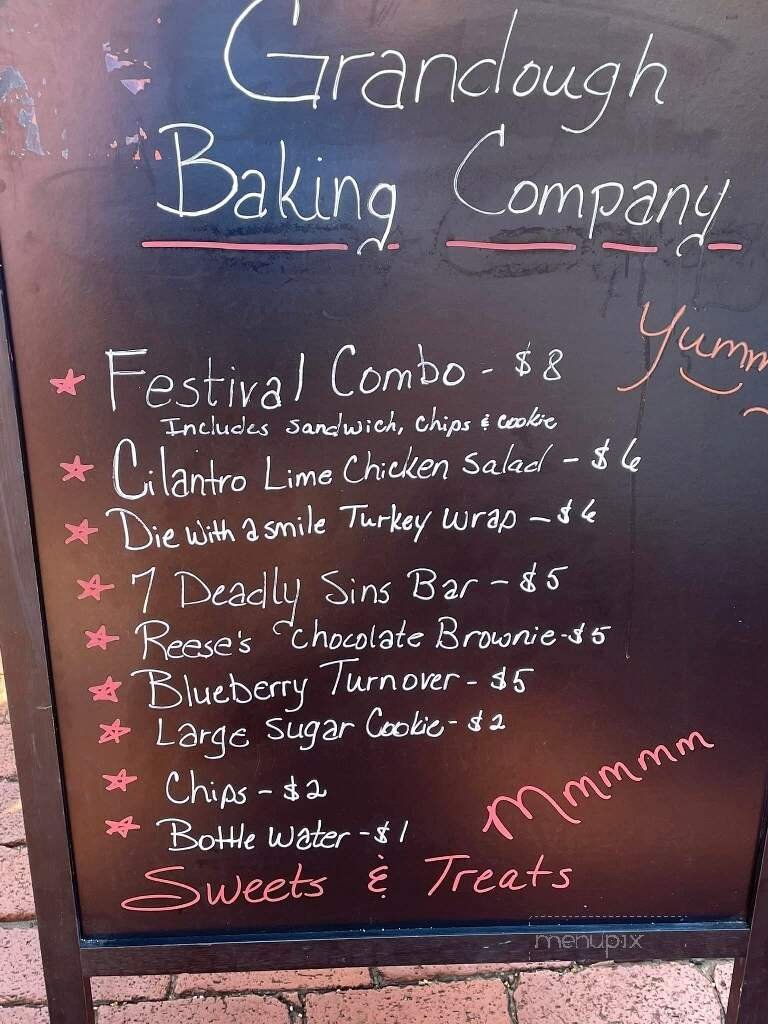 Grandough
Baking Company
Yumm
Festival Combo - $8
Includes sandwich, chips & cookie
Cilantro Lime Chicken Salad - $6
Die with a smile Turkey wrap - $6
7 Deadly Sins Bar - $5
Reese's chocolate Brownie - $5
Blueberry Turnover - $5
Large Sugar Cookie - $2
Chips - $2
Mmmmmm
Bottle Water - $1
Sweets & Treats
menupix